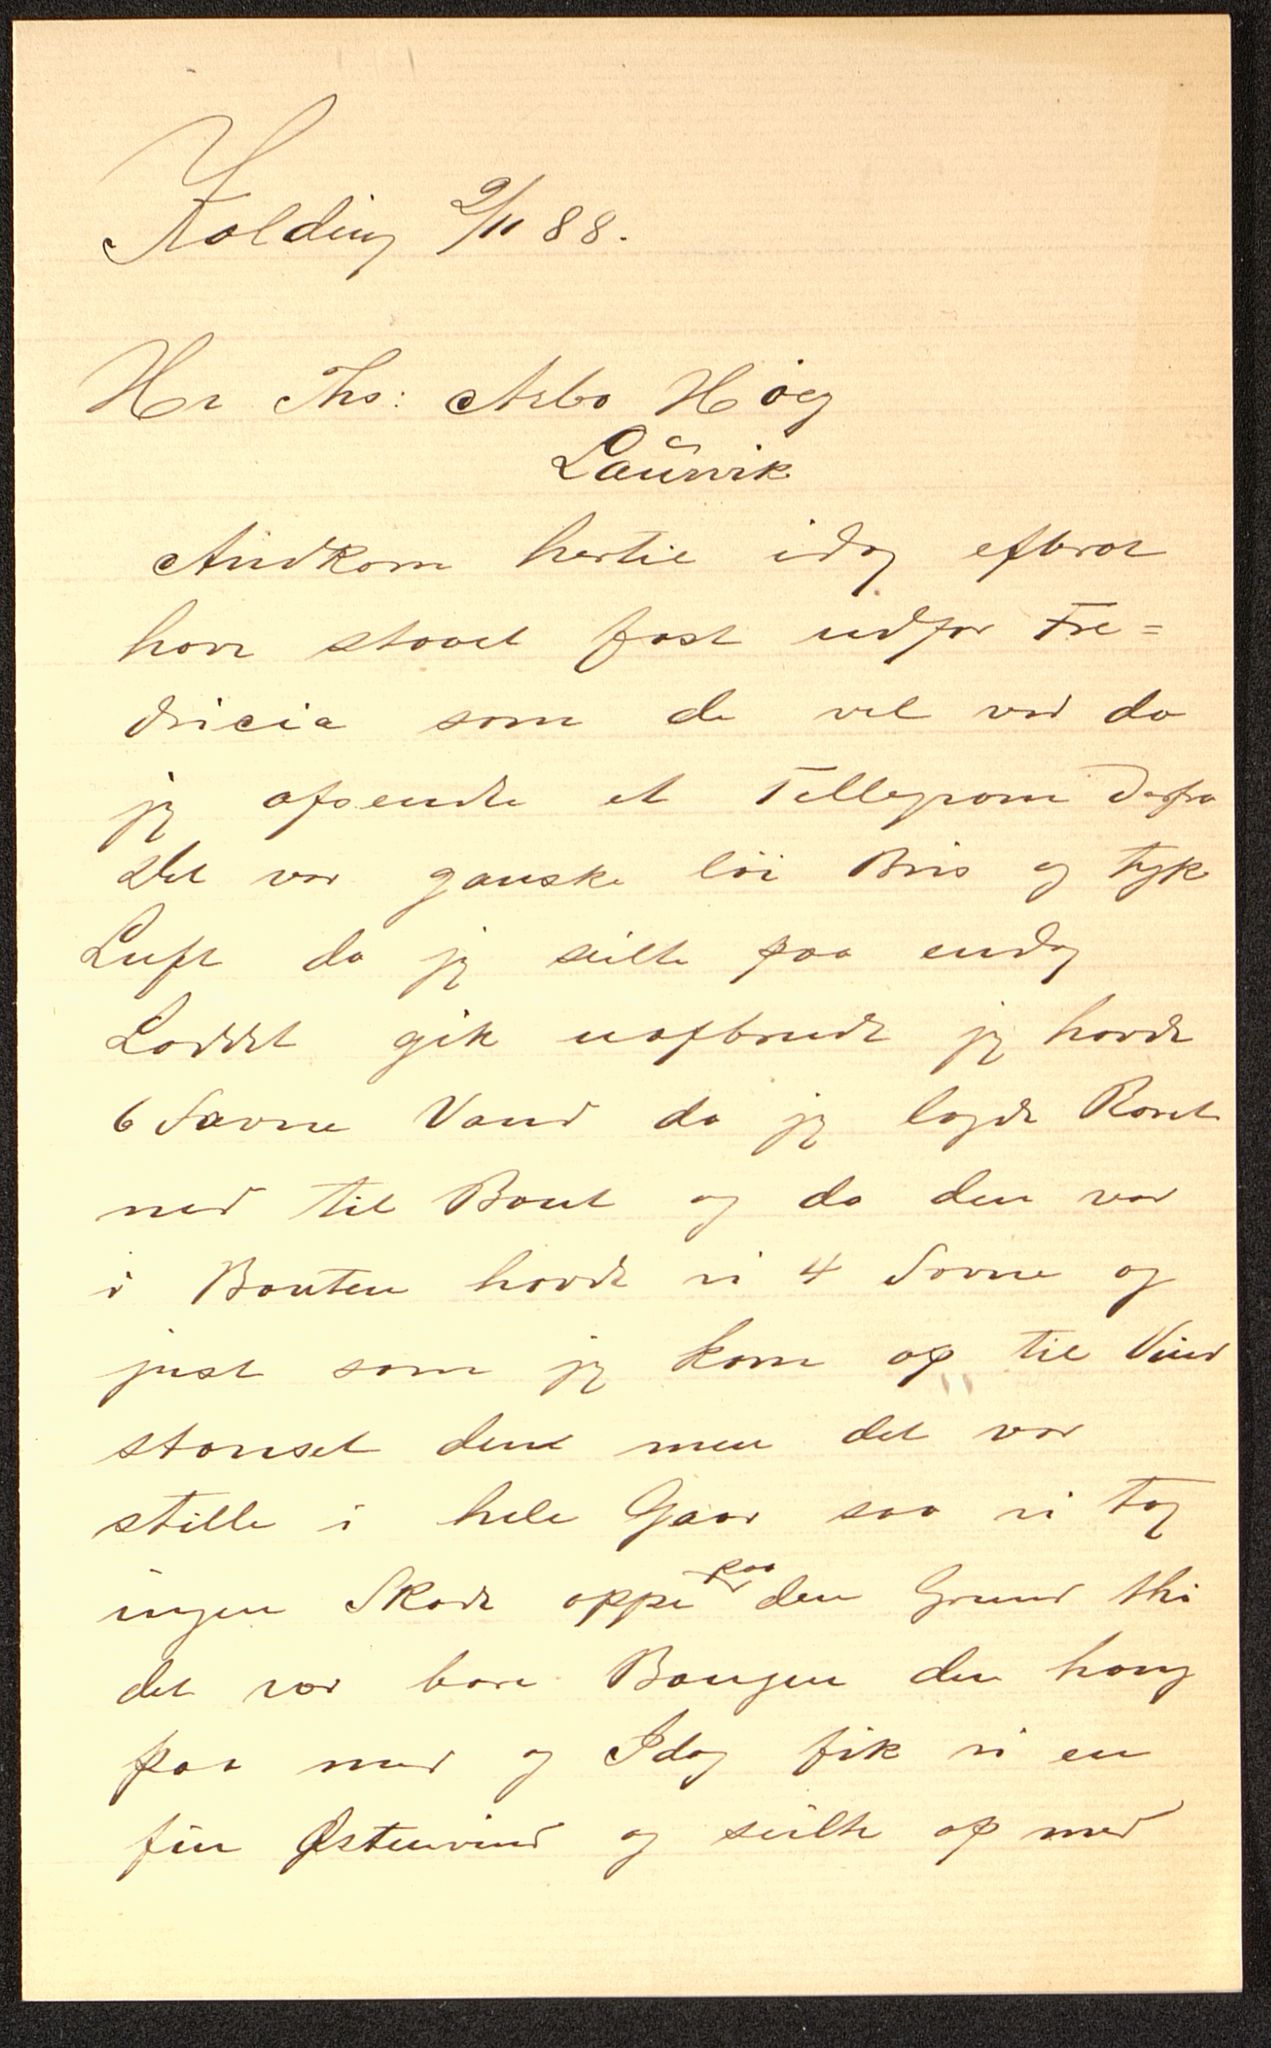 Kolding 2/11 88.
Hr Ths: Arbo Høeg
Laurvik
Andkom hertil idag efterat
have staaet fast udfor Fre=
dricia som de vel ved da
jeg afsendte et Tellegram derfra
Det var ganske løi Bris og tyk
Luft da jeg seilte paa endag
Loddet gik uafbrudt jeg havde
6 Favne Vand da jeg lagde Roret
ned til Bout og da den var
i Bouten havde vi 4 Favne og
just som jeg kom op til Vind
stanset den men det var
stille i hele Gaar saa vi tog
ingen Skade oppe paa den Grund thi
det var bare Bougen den hang
paa med og Idag fik vi en
fin Østenvind og seilte op med